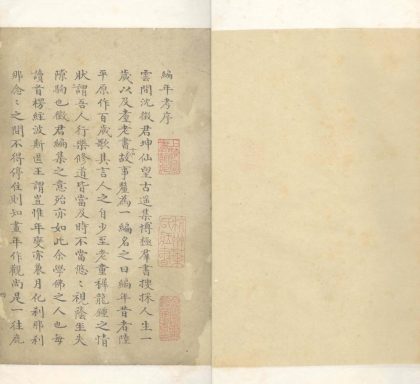 編年考序
雲間沈徵君坤仙望古遥集博極羣書搜採人生一
歲以及耄老書故事釐為一編名之曰編年昔者陸
平原作百歲歌其言人之自少至老童穉龍鍾之情
狀謂吾人行樂修道皆當及時不當悠悠視蔭坐失
隙駒也徵君編集之意殆亦如此余學佛之人也每
讀首楞經波斯匿王謂豈惟年變亦兼月化刹那刹
那念念之間不得停住則知晝年作觀尚是一往底